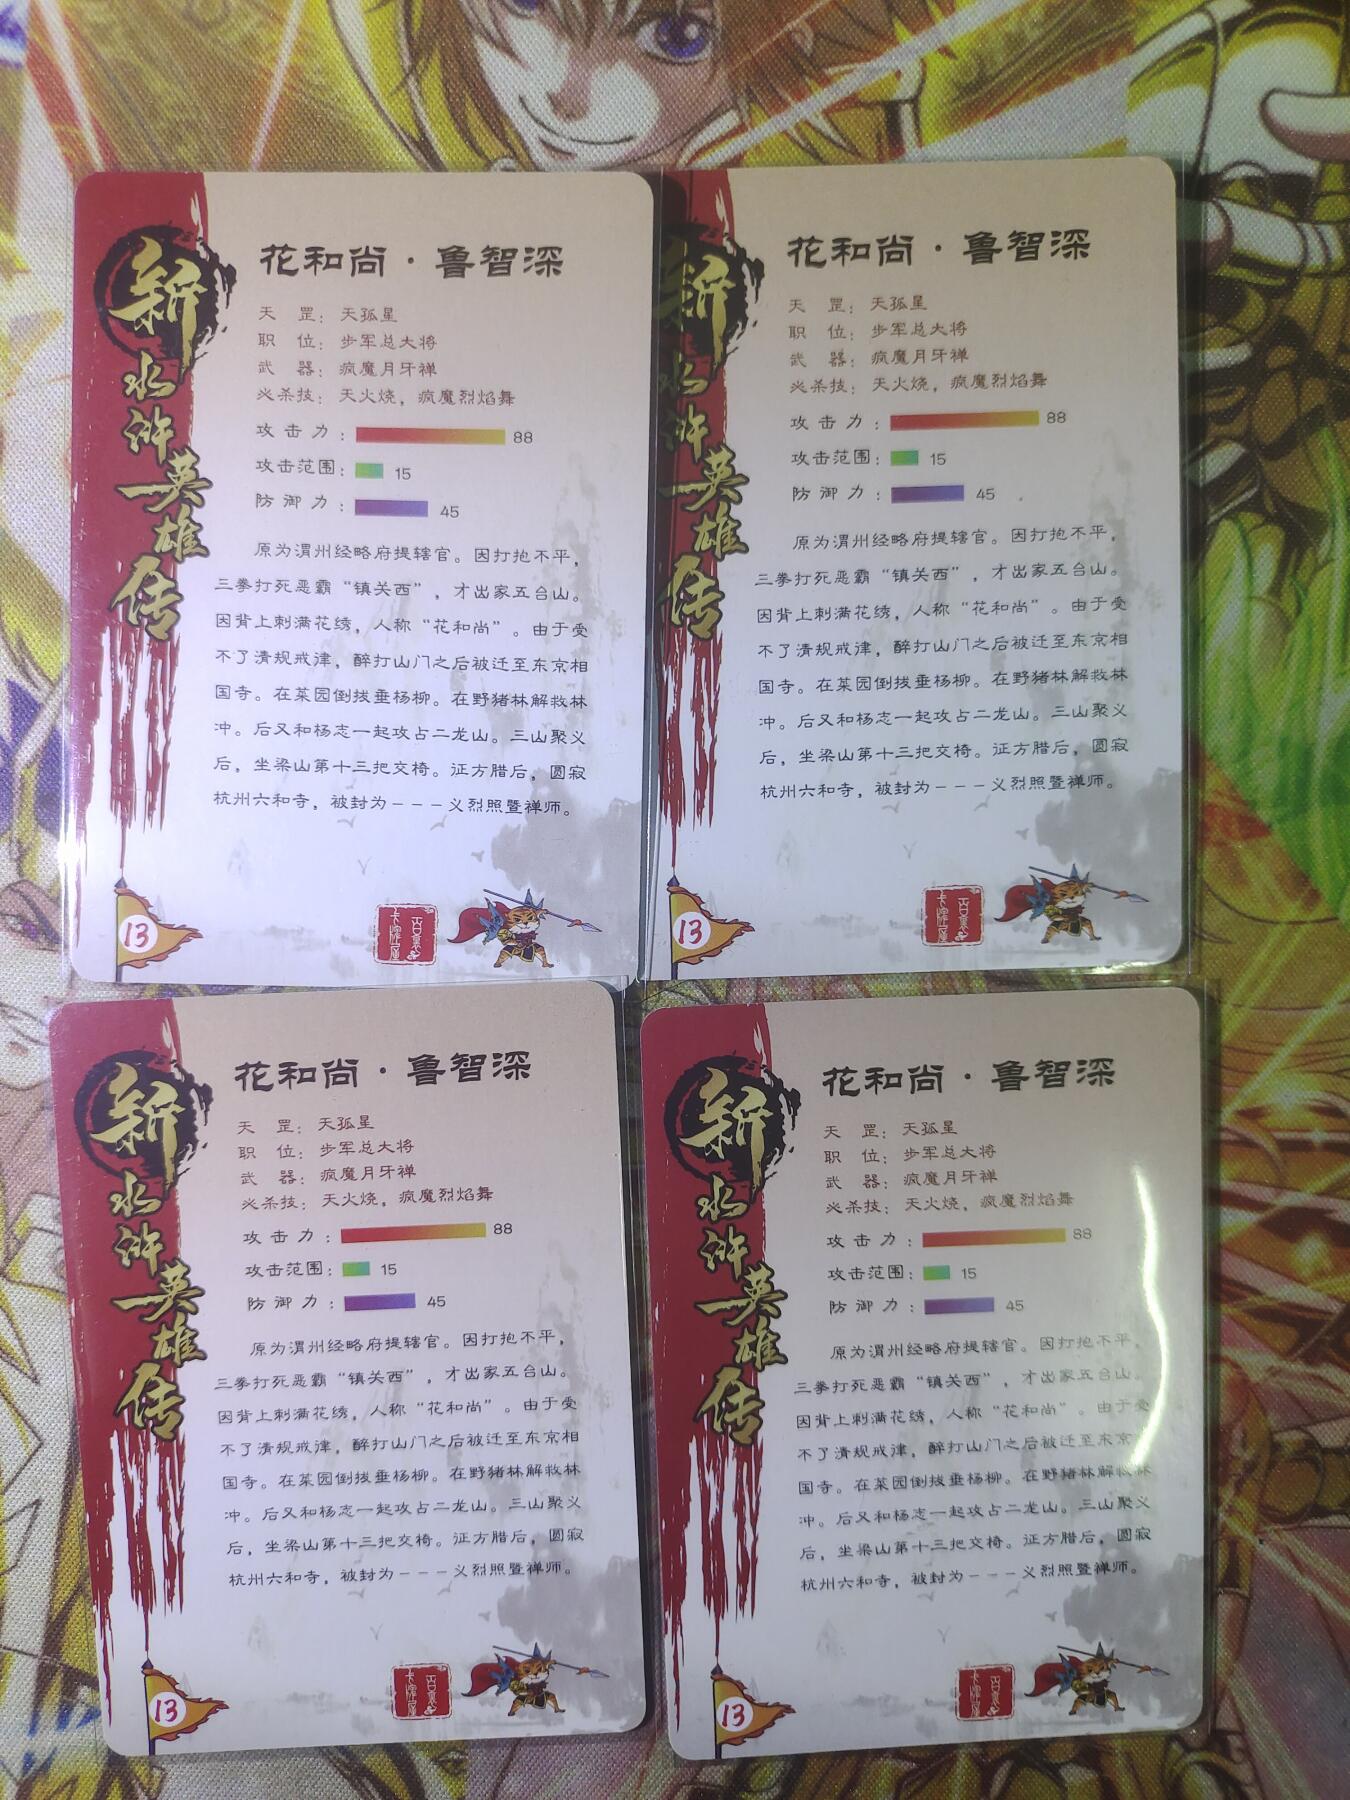 新水浒英雄传
花和尚·鲁智深
天 罡：天孤星
职 位：步军总大将
武 器：疯魔月牙禅
必杀技：天火烧，疯魔烈焰舞
攻击力：88
攻击范围：15
防御力：45
原为渭州经略府提辖官。因打抱不平，
三拳打死恶霸“镇关西”，才出家五台山。
因背上刺满花绣，人称“花和尚”。由于受
不了清规戒律，醉打山门之后被迁至东京相
国寺。在菜园倒拔垂杨柳。在野猪林解救林
冲。后又和杨志一起攻占二龙山。三山聚义
后，坐梁山第十三把交椅。征方腊后，圆寂
杭州六和寺，被封为---义烈照暨禅师。
13
新水浒英雄传
花和尚·鲁智深
天 罡：天孤星
职 位：步军总大将
武 器：疯魔月牙禅
必杀技：天火烧，疯魔烈焰舞
攻击力：88
攻击范围：15
防御力：45
原为渭州经略府提辖官。因打抱不平，
三拳打死恶霸“镇关西”，才出家五台山。
因背上刺满花绣，人称“花和尚”。由于受
不了清规戒律，醉打山门之后被迁至东京相
国寺。在菜园倒拔垂杨柳。在野猪林解救林
冲。后又和杨志一起攻占二龙山。三山聚义
后，坐梁山第十三把交椅。征方腊后，圆寂
杭州六和寺，被封为---义烈照暨禅师。
13
新水浒英雄传
花和尚·鲁智深
天 罡：天孤星
职 位：步军总大将
武 器：疯魔月牙禅
必杀技：天火烧，疯魔烈焰舞
攻击力：88
攻击范围：15
防御力：45
原为渭州经略府提辖官。因打抱不平，
三拳打死恶霸“镇关西”，才出家五台山。
因背上刺满花绣，人称“花和尚”。由于受
不了清规戒律，醉打山门之后被迁至东京相
国寺。在菜园倒拔垂杨柳。在野猪林解救林
冲。后又和杨志一起攻占二龙山。三山聚义
后，坐梁山第十三把交椅。征方腊后，圆寂
杭州六和寺，被封为---义烈照暨禅师。
13
新水浒英雄传
花和尚·鲁智深
天 罡：天孤星
职 位：步军总大将
武 器：疯魔月牙禅
必杀技：天火烧，疯魔烈焰舞
攻击力：88
攻击范围：15
防御力：45
原为渭州经略府提辖官。因打抱不平，
三拳打死恶霸“镇关西”，才出家五台山。
因背上刺满花绣，人称“花和尚”。由于受
不了清规戒律，醉打山门之后被迁至东京相
国寺。在菜园倒拔垂杨柳。在野猪林解救林
冲。后又和杨志一起攻占二龙山。三山聚义
后，坐梁山第十三把交椅。征方腊后，圆寂
杭州六和寺，被封为---义烈照暨禅师。
13